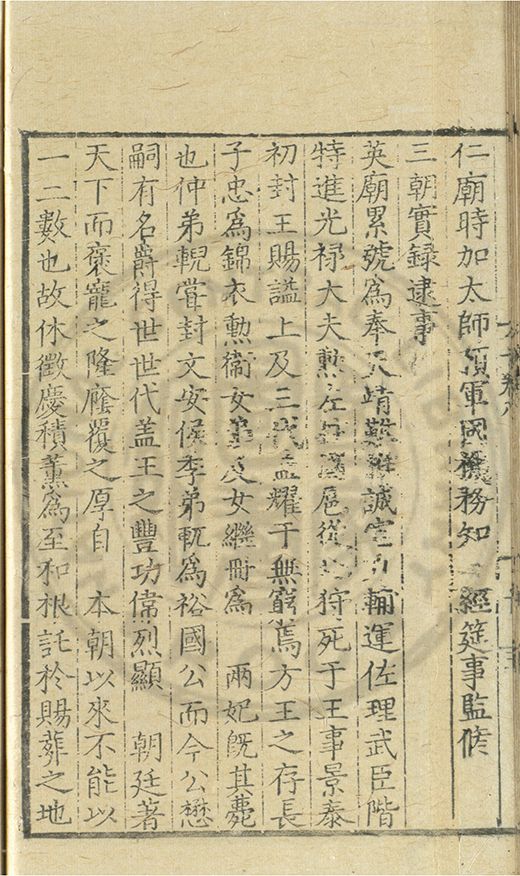 仁廟時加太師領軍國機務知　經筵事監脩
三朝實録逮事
英廟累號為奉天靖難推誠宣力輔運佐理武臣階
特進光禄大夫勲左柱國扈從北狩死于王事景泰
初封王賜謚上及三代並耀于無窮焉方王之存長
子忠為錦衣勲衛女弟及女繼冊為　兩妃旣其薨
也仲弟輗嘗封文安侯季弟軏為裕國公而今公懋
嗣有名爵得世世代盖王之豐功偉烈顯　朝廷著
天下而褒寵之隆廕覆之厚自　本朝以來不能以
一二數也故休徵慶積薰為至和根託於賜葬之地